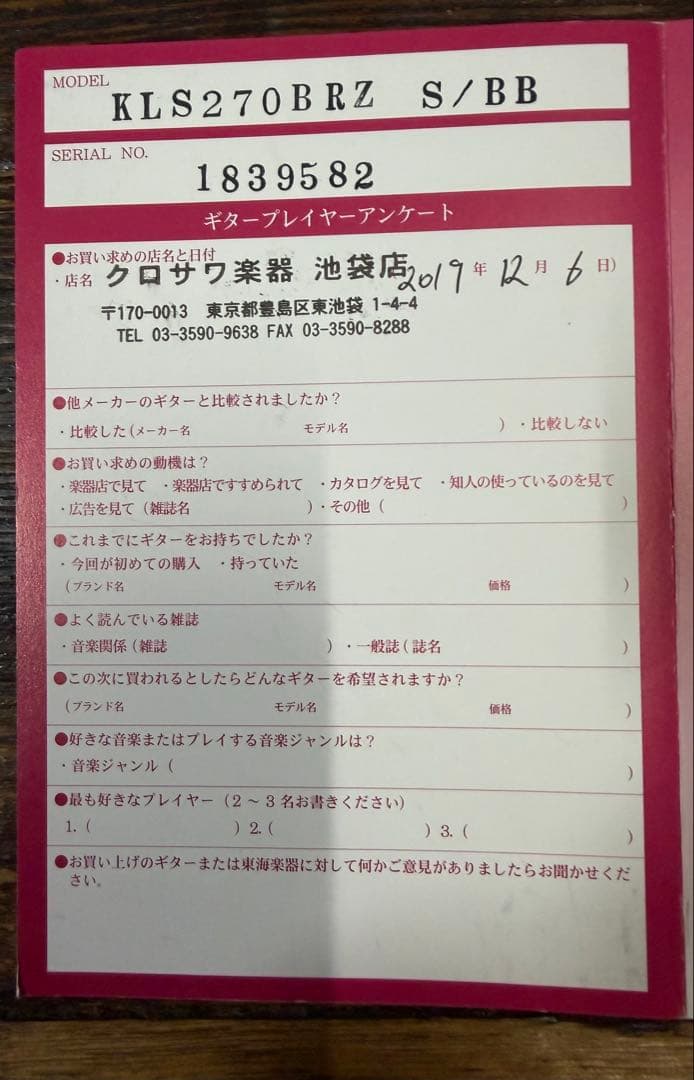 MODEL
KLS270BRZ S/BB
SERIAL NO.
1839582
ギタープレイヤーアンケート
●お買い求めの店名と日付
・店名 クロサワ楽器 池袋店 2019年 12月 6日)
〒170-0013 東京都豊島区東池袋 1-4-4
TEL 03-3590-9638 FAX 03-3590-8288
●他メーカーのギターと比較されましたか？
・比較した(メーカー名 モデル名 )・比較しない
●お買い求めの動機は？
・楽器店で見て ・楽器店ですすめられて ・カタログを見て ・知人の使っているのを見て
・広告を見て (雑誌名 )・その他 ( )
●これまでにギターをお持ちでしたか？
・今回が初めての購入 ・持っていた
(ブランド名 モデル名 価格 )
●よく読んでいる雑誌
・音楽関係 (雑誌 )・一般誌 (誌名 )
●この次に買われるとしたらどんなギターを希望されますか？
(ブランド名 モデル名 価格 )
●好きな音楽またはプレイする音楽ジャンルは？
・音楽ジャンル ( )
●最も好きなプレイヤー（2～3名お書きください）
1. ( ) 2. ( ) 3. ( )
●お買い上げのギターまたは東海楽器に対して何かご意見がありましたらお聞かせくだ
さい。